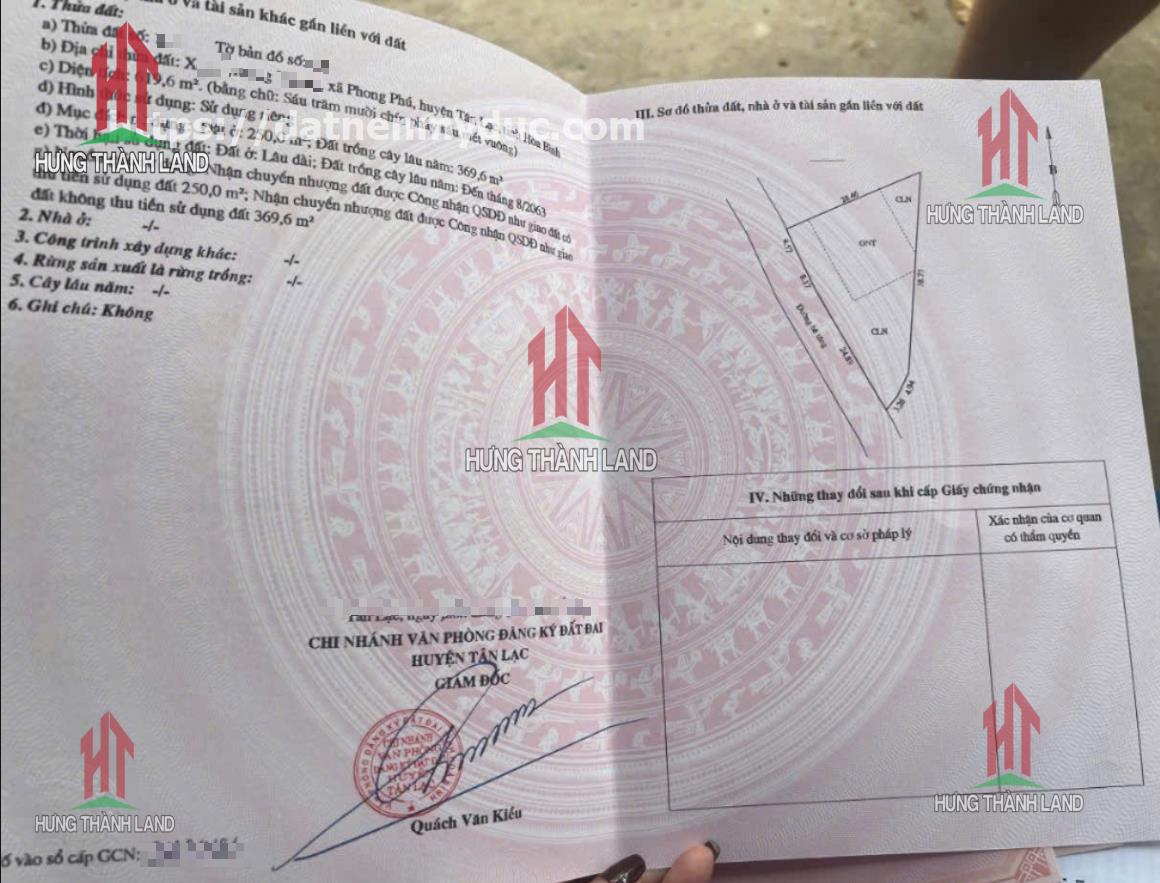 ở và tài sản khác gắn liền với đất
1. Thửa đất:
a) Thửa đất số: Tờ bản đồ số:
b) Địa chỉ thửa đất: X xã Phong Phú, huyện Tân Lạc, tỉnh Hòa Bình
c) Diện tích: 619,6 m². (bằng chữ: Sáu trăm mười chín phẩy sáu mét vuông)
d) Hình thức sử dụng: Sử dụng riêng
đ) Mục đích Đất ở: 250,0 m²; Đất trồng cây lâu năm: 369,6 m²
e) Thời hạn sử dụng đất: Đất ở: Lâu dài; Đất trồng cây lâu năm: Đến tháng 8/2063
Nhận chuyển nhượng đất được Công nhận QSDĐ như giao đất có
thu tiền sử dụng đất 250,0 m²; Nhận chuyển nhượng đất được Công nhận QSDĐ như giao
đất không thu tiền sử dụng đất 369,6 m²
2. Nhà ở: -/-
3. Công trình xây dựng khác: -/-
4. Rừng sản xuất là rừng trồng: -/-
5. Cây lâu năm: -/-
6. Ghi chú: Không
CHI NHÁNH VĂN PHÒNG ĐĂNG KÝ ĐẤT ĐAI
HUYỆN TÂN LẠC
GIÁM ĐỐC
CHI NHÁNH
VĂN PHÒNG
ĐĂNG KÝ ĐẤT ĐAI
HUYỆN
TÂN LẠC
Quách Văn Kiều
số vào sổ cấp GCN:
III. Sơ đồ thửa đất, nhà ở và tài sản gắn liền với đất
B
CLN
ONT
4,57
8,37
Đường bê tông
24,89
CLN
3,26
4,94
IV. Những thay đổi sau khi cấp Giấy chứng nhận
Nội dung thay đổi và cơ sở pháp lý
Xác nhận của cơ quan
có thẩm quyền
https://datnenmyduc.com
HƯNG THÀNH LAND
HƯNG THÀNH LAND
HƯNG THÀNH LAND
HƯNG THÀNH LAND
HƯNG THÀNH LAND